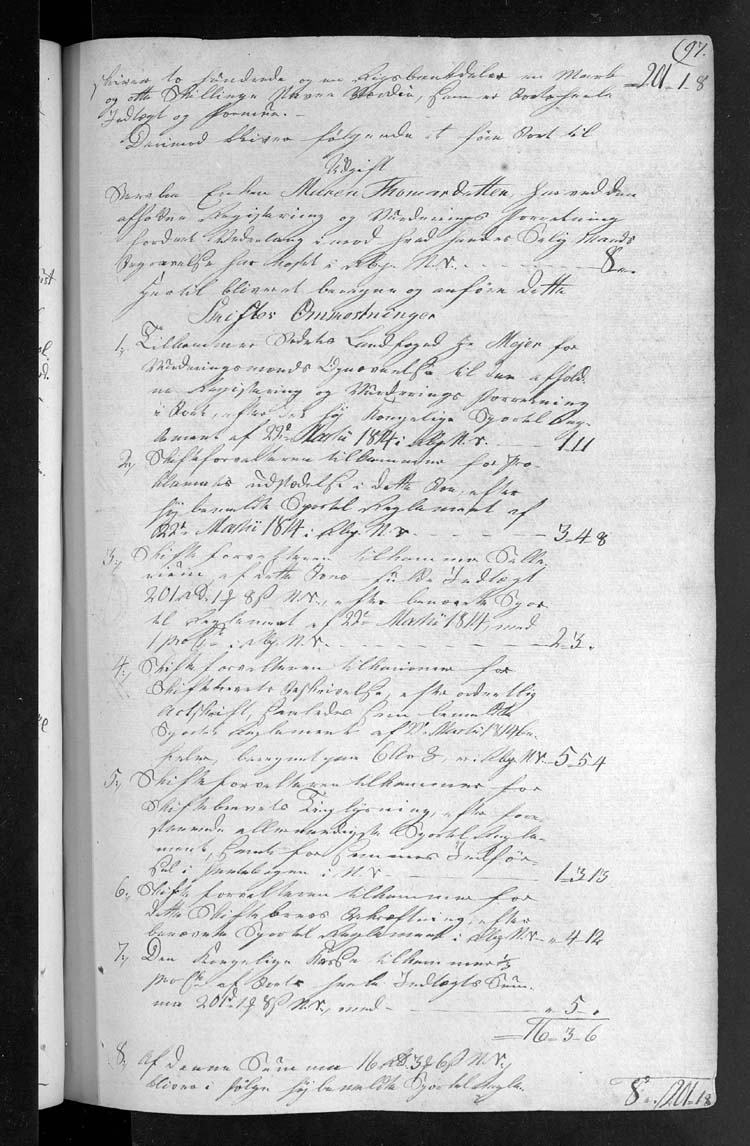 (97.
skriver to hundrede og en Rigsbankdaler en Mark 201 - 1 - 8
og otte Skillinge Navne Værdie, som er Boets heele
Indtægt og Formue. -
Derimod bliver følgende at føre Boet til
Udgift
Enken Maren Thomasdatter, har ved den
afholdte Registering og Vurderings Forretning
fordret Vederlag imod hvad hendes Salig Mands
Begravelse har kostet i Rbp. N.V. - - - 8 "
Hertil bliver at beregne og anføre dette
Skiftes Omkostninger
1, Tilkommer Stedets Landfoged Hr Mejer for
Vurderingsmænds Opnævnelse til den afhold-
ne Registering og Vurderings Forretning
i Boet, efter det høj Kongelige Sportel Reg-
lement af 22de Martii 1814 i Rbp. N.V.
2, Skifteforvalteren tilkommer for Pro-
klamets udstædelse i dette Boe, efter
høj bemeldte Sportel Reglement af
22de Martii 1814 i Rbp. N.V. - - - 3 - 4 - 8
3, Skifteforvalteren tilkommer Salle-
rium, af dette Boes heele Indtægt
201 Rd. 1 # 8 ß N.V., efter benævnte Spor-
tel Reglement af 22de Martii 1814, med
1 proCto i Rbp. N.V. - - - 2 - 3 -
4, Skifteforvalteren tilkommer for
Skiftebrevets Beskrivelse, efter ordentlig
Actskrift, samledes som bemeldte
Sportel Reglement af 22 Martii 1814 be-
faler, beregnet paa i Rbp. N.V. - 5 - 5 - 4
5, Skifteforvalteren tilkommer for
Skiftebrevets Tinglysning, efter fore-
staaende allernaadigste Sportel Regle-
ment, samt for sammes Indfør-
sel i Pantebogen i N.V. - - - 1 - 3 - 13
6, Skifteforvalteren tilkommer for
dette Skiftebrevs Bekræftning, efter
benævnte Sportel Reglement i Rbp. N.V. - " 4 - 12
7, Den Kongelige Kasse tilkommer
proCto af Boets heele Indtægts Sum-
ma 201 d. 1 # 8 ß N.V., med - - - " 5 - "
16 - 3 - 6
8, Af denne Summa 16 Rd 3 # 6 ß N.V.
bliver i følge høj bemeldte Sportel Regle-
8 " 201 - 1 8